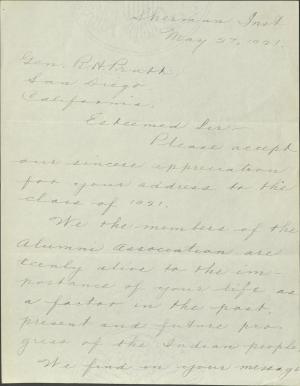 Sherman Inst.
May 27, 1921.
Gen. R.H. Pratt,
San Diego
California.
Esteemed Sir:-
Please accept
our sincere appreciation
for your address to the
class of 1921.
We the members of the
Alumni Association are
keenly alive to the im-
portance of your life as
a factor in the past,
present and future pro-
gress of the Indian people.
We find in your message